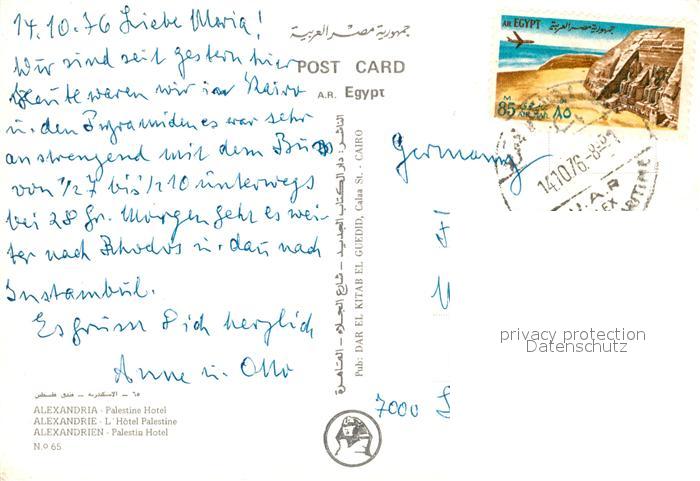 14.10.76 Liebe Maria!
Wir sind seit gestern hier
Heute waren wir in Kairo
u. den Pyramiden es war sehr
anstrengend mit dem Bus
von 1/2 7 bis 1/2 10 unterwegs
bei 28 Gr. Morgen geht es wei-
ter nach Rhodos u. dan nach
Instambul.
Es grüsst Dich herzlich
Anne u. Otto
٦٥ – الاسكندرية – فندق فلسطين
ALEXANDRIA - Palestine Hotel
ALEXANDRIE - L'Hôtel Palestine
ALEXANDRIEN - Palestin Hotel
N.o 65
جمهورية مصر العربية
POST CARD
A.R. Egypt
الناشر: دار الكتاب الجديد – شارع الجلاء – القاهرة
Pub: DAR EL KITAB EL GUEDID, Calaa St. : CAIRO
AR EGYPT جمهورية مصر العربية
85 M
AIR MAIL ٨٥
14.10.76.8-
U.A.R
ALEX
Germany
7000
privacy protection
Datenschutz